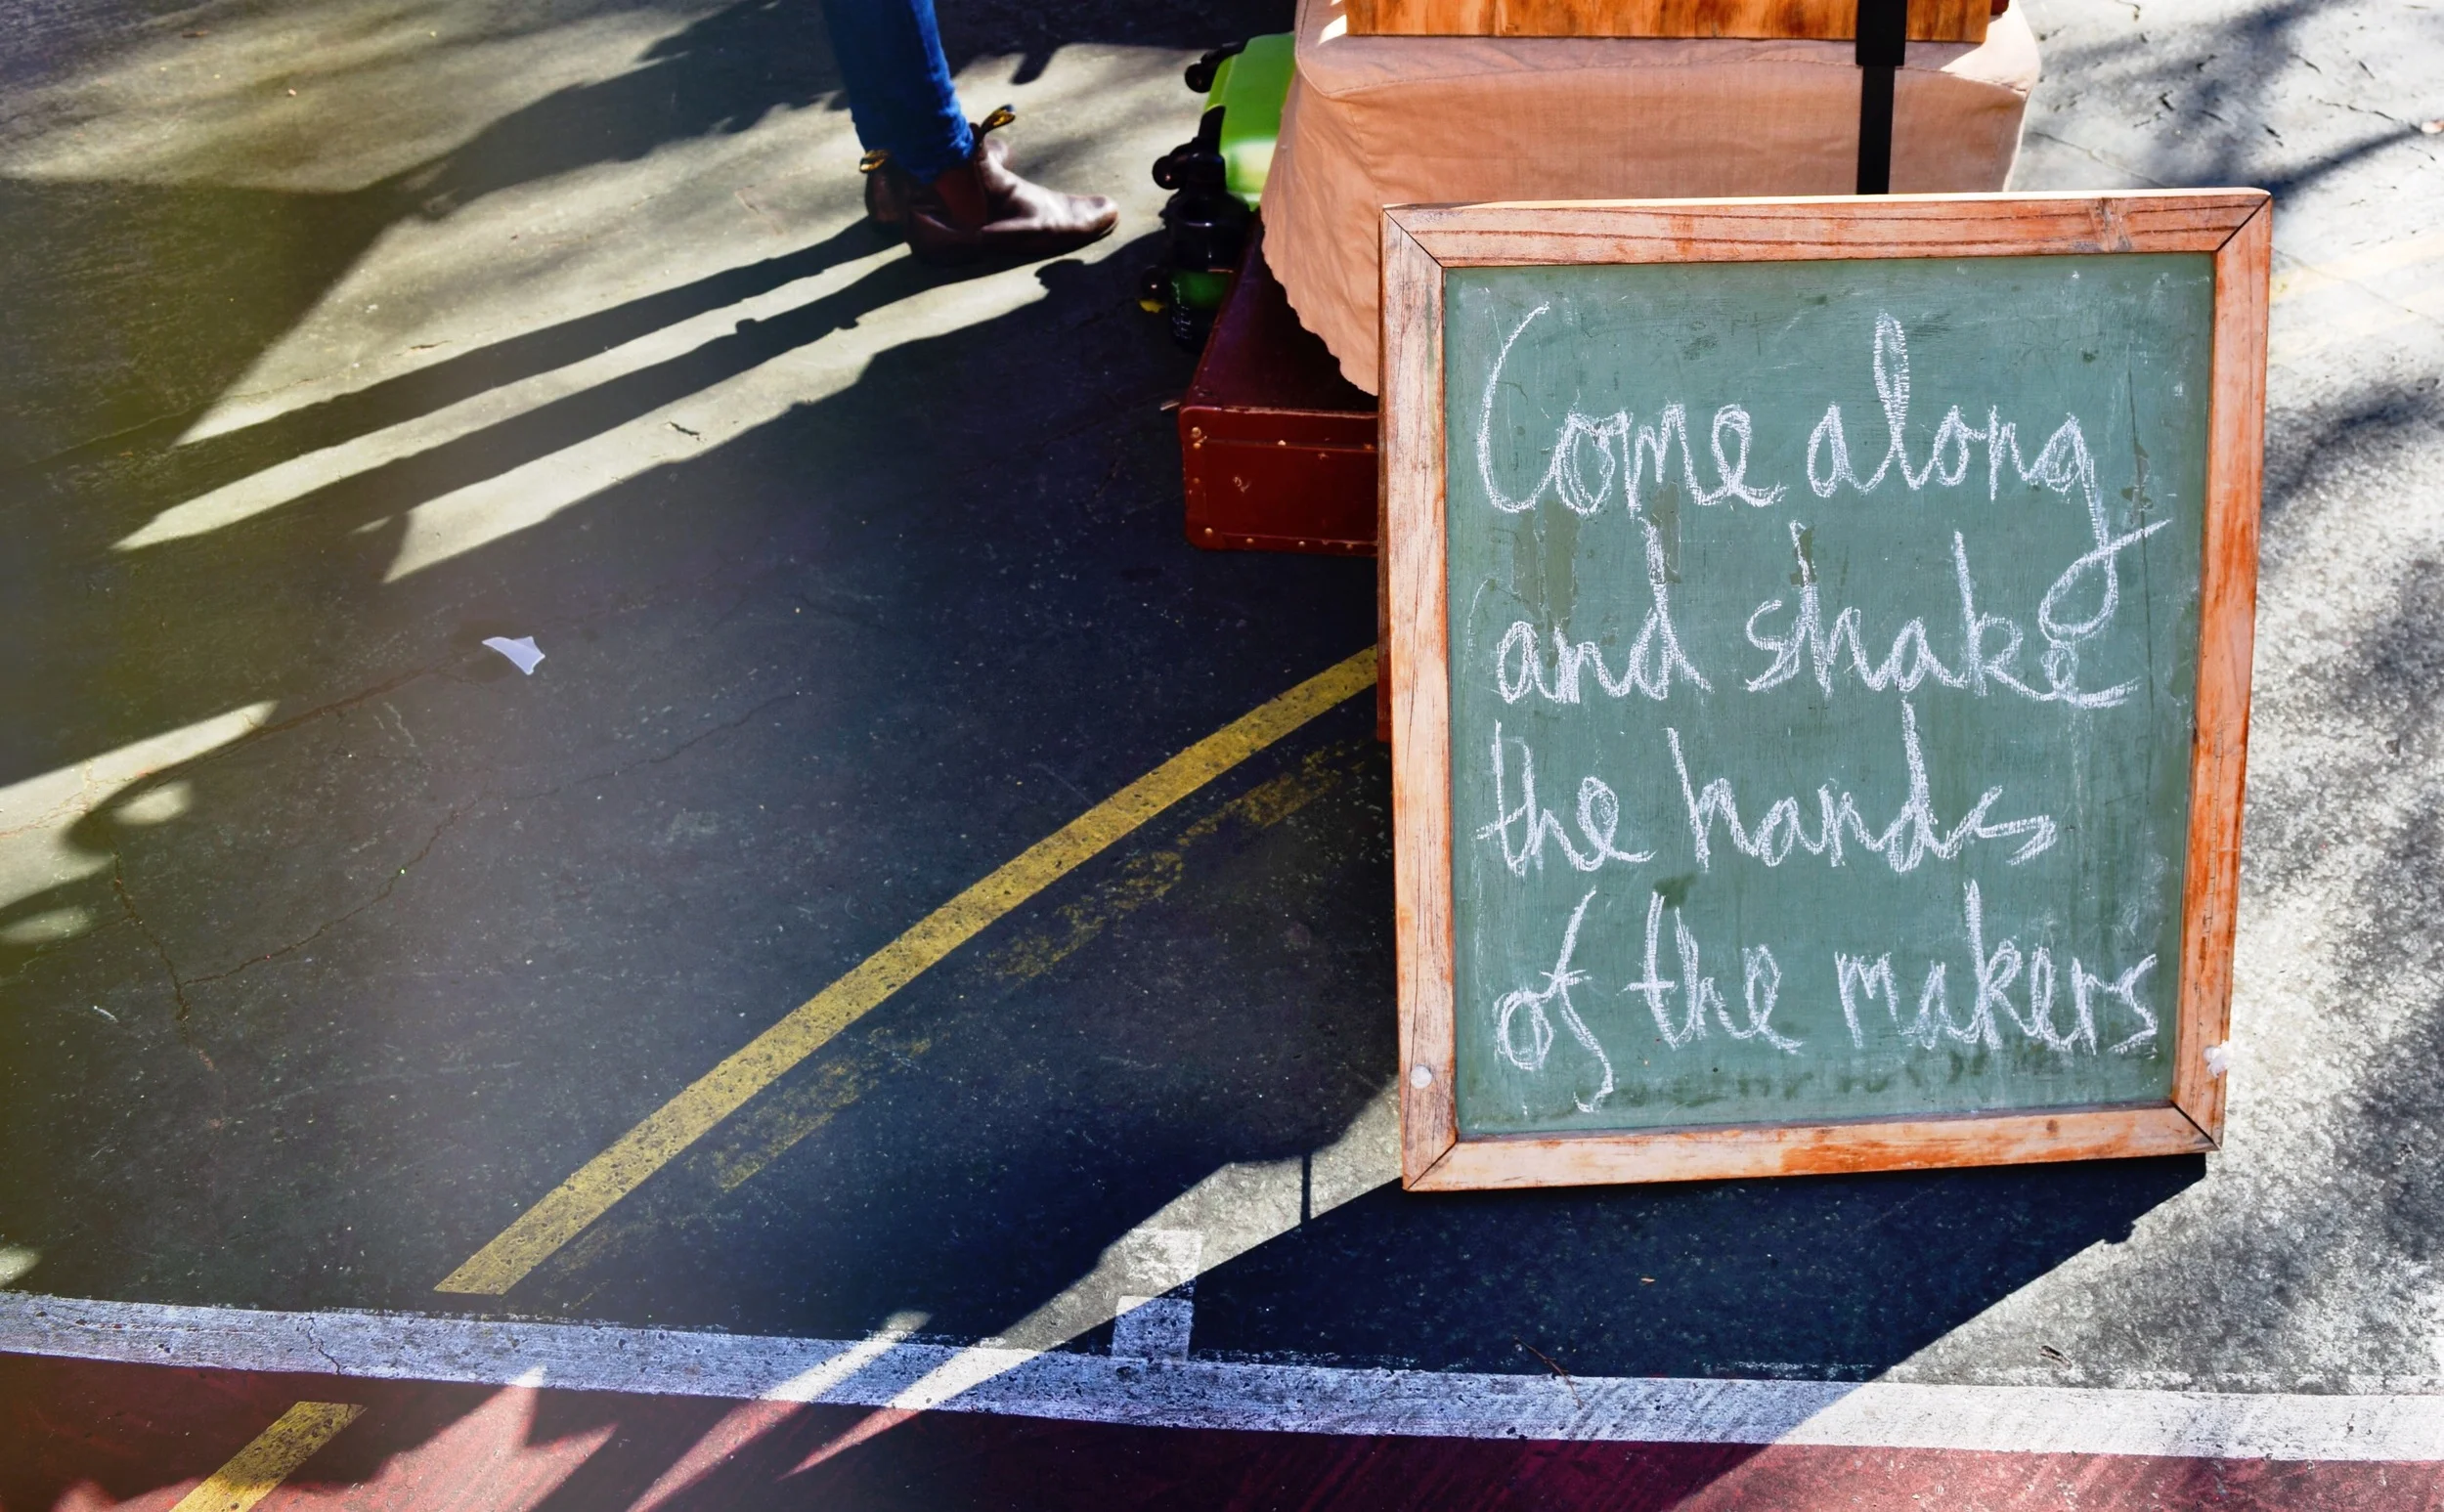 Come along
and shake
the hands
of the makers